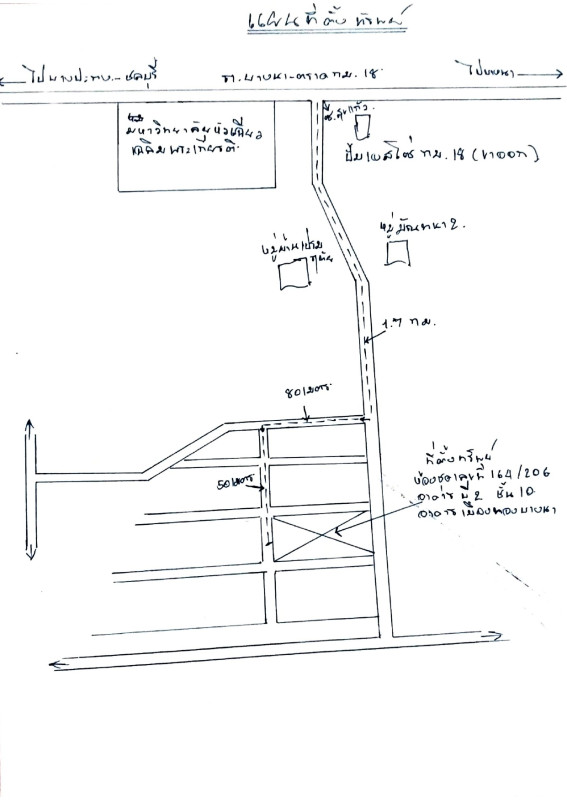 แผนที่ตั้งทรัพย์
ไปบางปะกง-ชลบุรี
ถ.บางนา-ตราด กม.18
ไปบางนา
มหาวิทยาลัยหัวเฉียว
เฉลิมพระเกียรติ
ซ.
ปั๊มเอสโซ่ กม.18 (ขาออก)
หมู่มัณฑนา 2
หมู่บ้าน
1.7 กม.
80 เมตร
50 เมตร
ที่ตั้งทรัพย์
ห้องชุดเลขที่ 164/206
อาคาร บี 2 ชั้น 10
อาคารเมืองทองบางนา